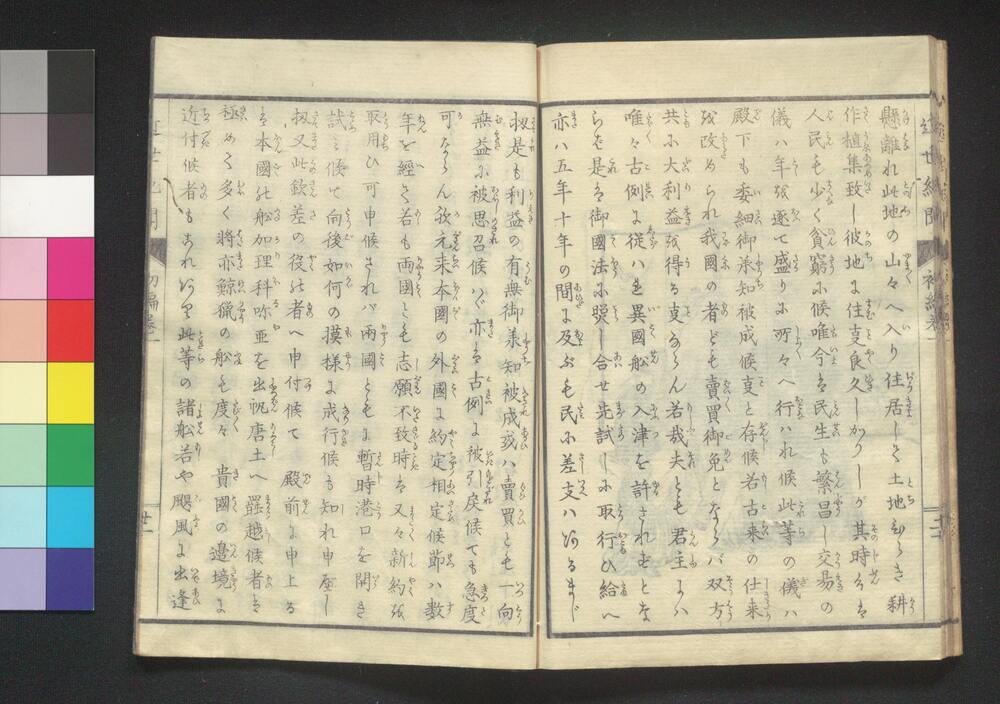 懸離れ此地の山々へ入り住居しそ土地ひらき耕
作植集致し彼地に住支良久しかりしが其時ろは
人民も少く貧窮に候唯今は民生も繁昌し交易の
儀ハ年を逐て盛りに所々へ行ハれ候此等の儀ハ
殿下も委細御承知被成候支と存候若古来の仕来
を改められ我國の者ども賣買御免とならバ双方
共に大利益を得る支ならん若哉夫とも君主よハ
唯々古例に従ハせ異國船の入津を許されずとな
らそ是は御國法に照し合せ先試しに取行ひ給へ
亦ハ五年十年の間に及ぶも民に差支ハあるまじ
扨是も利益の有無御承知被成或ハ賣買とも一向
無益に被思召候ハヾ亦は古例に被引戻候ても急度
可ならん殊元来本國の外國と約定相定候節ハ数
年を經て若も両國とも志願不致時は又々新約を
取用ひ可申候されバ両國ともに暫時港口を開き
試し候て向後如何の摸様に成行候も知れ申座し
扨又此欽差の役の者へ申付候て　殿前に申上る
は本國の舩加理科呅亜を出帆唐土へ罷越候者は
極めて多く將亦鯨獵の舩も度々　貴國の邉境に
近付候者もまれあり此等の諸舩若や颶風に出逢
近世紀聞
初編巻一